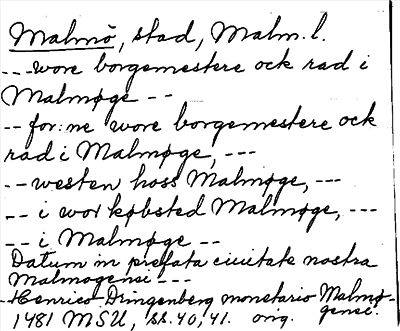 Malmö, stad, Malm. l.
--- wore borgemestere ock rad i
Malmøge --
-- for:ne wore borgemestere ock
rad i Malmøge, ---
-- westen hoss Malmøge, ---
-- i wor købsted Malmøge, ---
-- i Malmøge --
Datum in prefata ciuitate nostra
Malmogensi ---
- Henrico Dringenberg monetario Malmø-
gensi.
1481 MSU, ss. 40, 41. orig.